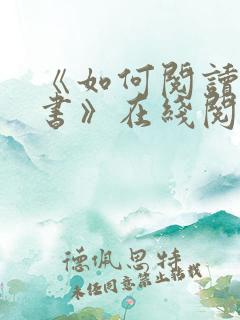 《如何閱讀
書》在綫閱
德佩思特
未经同意禁止转载